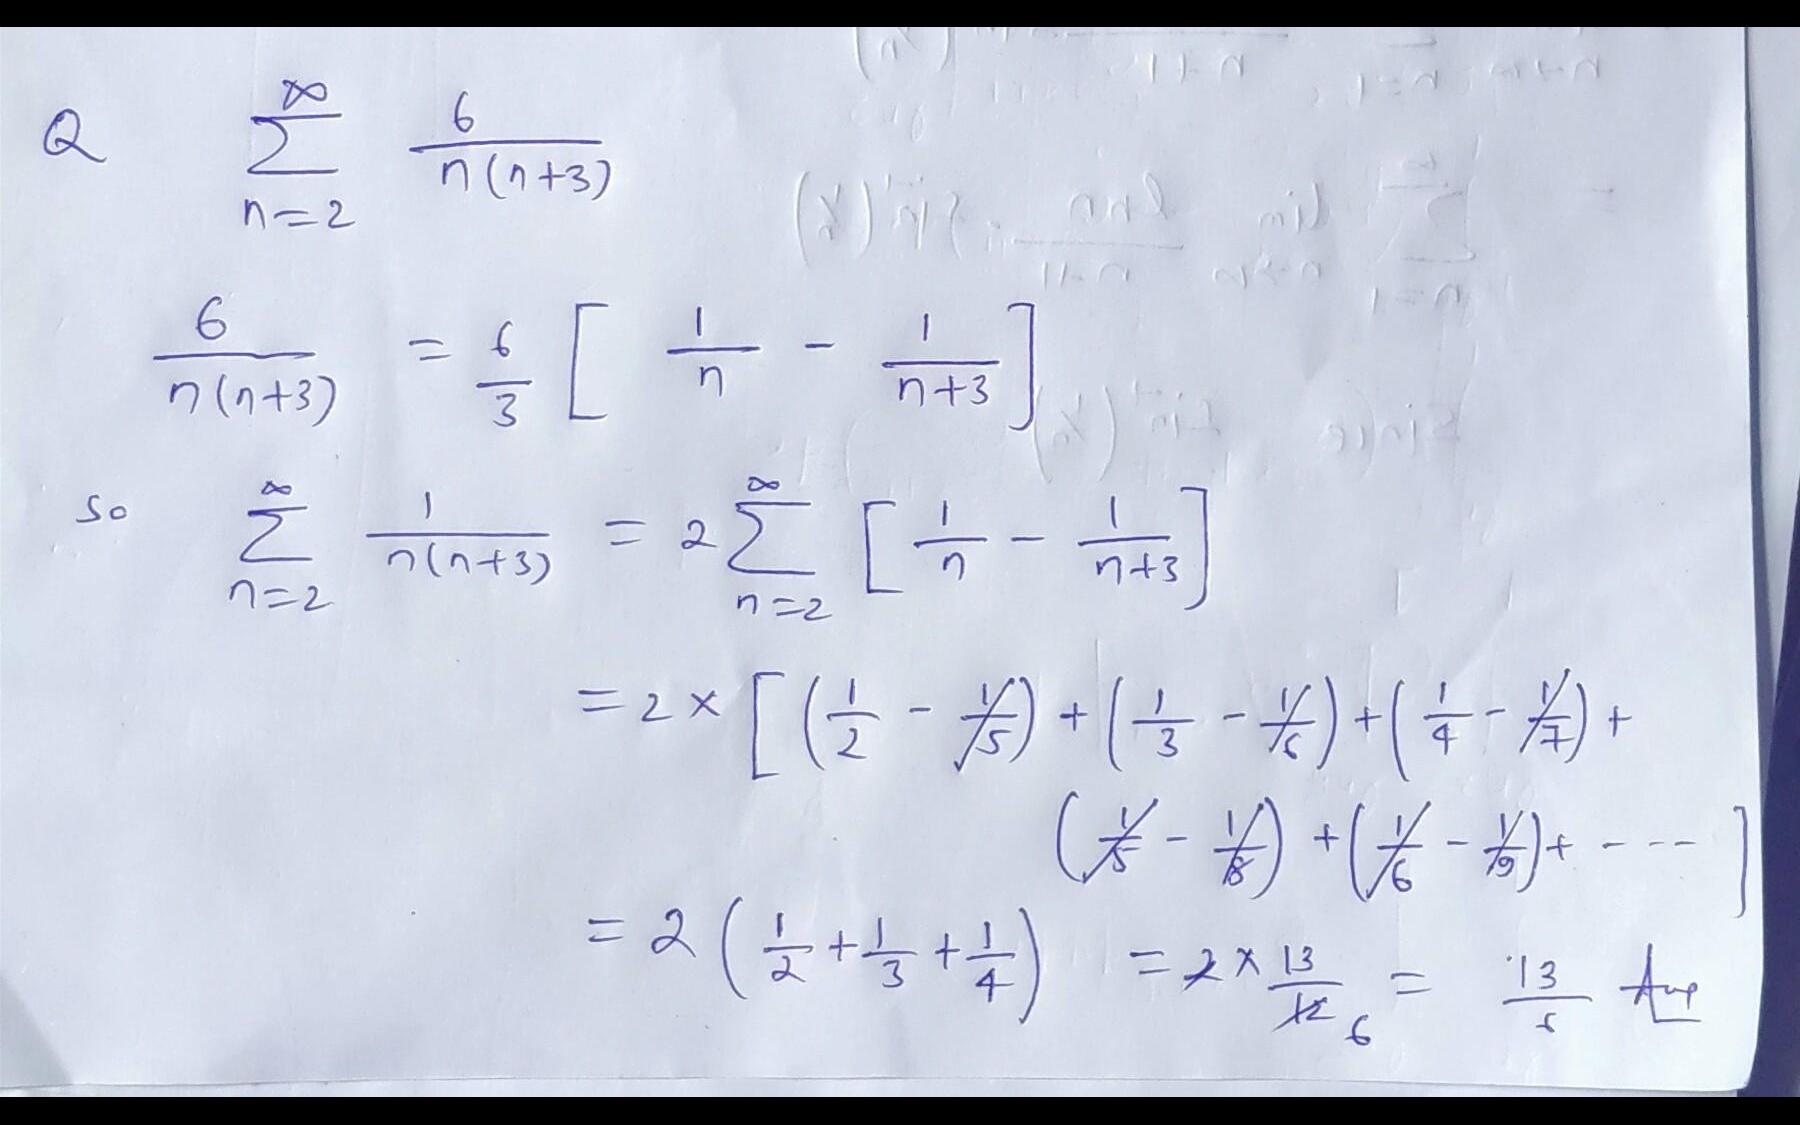 Q ∞ ∑ n=2 6/n(n+3)
6/n(n+3) = 6/3 [ 1/n - 1/n+3 ]
so ∞ ∑ n=2 1/n(n+3) = 2 ∞ ∑ n=2 [ 1/n - 1/n+3 ]
= 2 × [ (1/2 - 1/5) + (1/3 - 1/6) + (1/4 - 1/7) +
(1/5 - 1/8) + (1/6 - 1/9) + ---- ]
= 2 ( 1/2 + 1/3 + 1/4 ) = 2 × 13/12 6 = 13/6 Ans